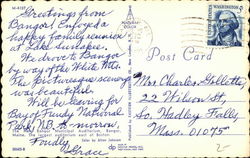 Greetings from
Bangor! Enjoyed a
happy family reunion
at Lake Sunapee.
We drove to Bangor
by way of the White Mts.
The picturesque scenery
was beautiful.
Will be leaving for
Bay of Fundy National
Park N.B. to-morrow.
Fondly,
Grace
Mrs Charles Gollette,
22 Wilson St,
So. Hadley Falls,
Mass. 01075
Municipal Auditorium, Bangor,
WASHINGTON